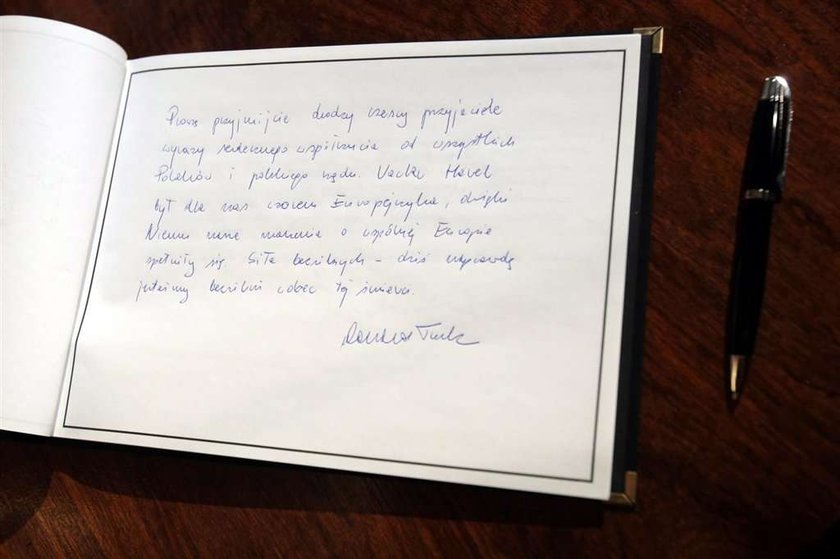 Proszę przyjmijcie drodzy czescy przyjaciele
wyrazy serdecznego współczucia od wszystkich
Polaków i polskiego rządu. Vaclav Havel
był dla nas wzorem Europejczyka, dzięki
Niemu nasze marzenia o wspólnej Europie
spełniły się. Siła bezsilnych – dziś naprawdę
jesteśmy bezsilni wobec tej śmierci.
Donald Tusk